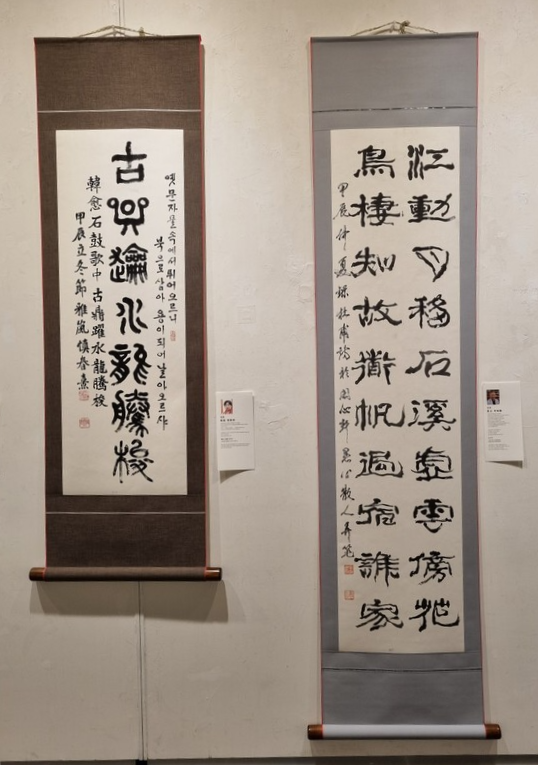 옛 문자 물속에서 뛰어오르니
북으로 삼아 용이 되어 날아오르샤
古鼎躍水龍騰梭
韓愈石鼓歌中 古鼎躍水龍騰梭
甲辰立冬節 雅嵐 慎春熹
江動月移石溪虛雲傍花
鳥棲知故道帆過宿誰家
甲辰仲夏錄杜甫詩於 心軒 散人弄筆